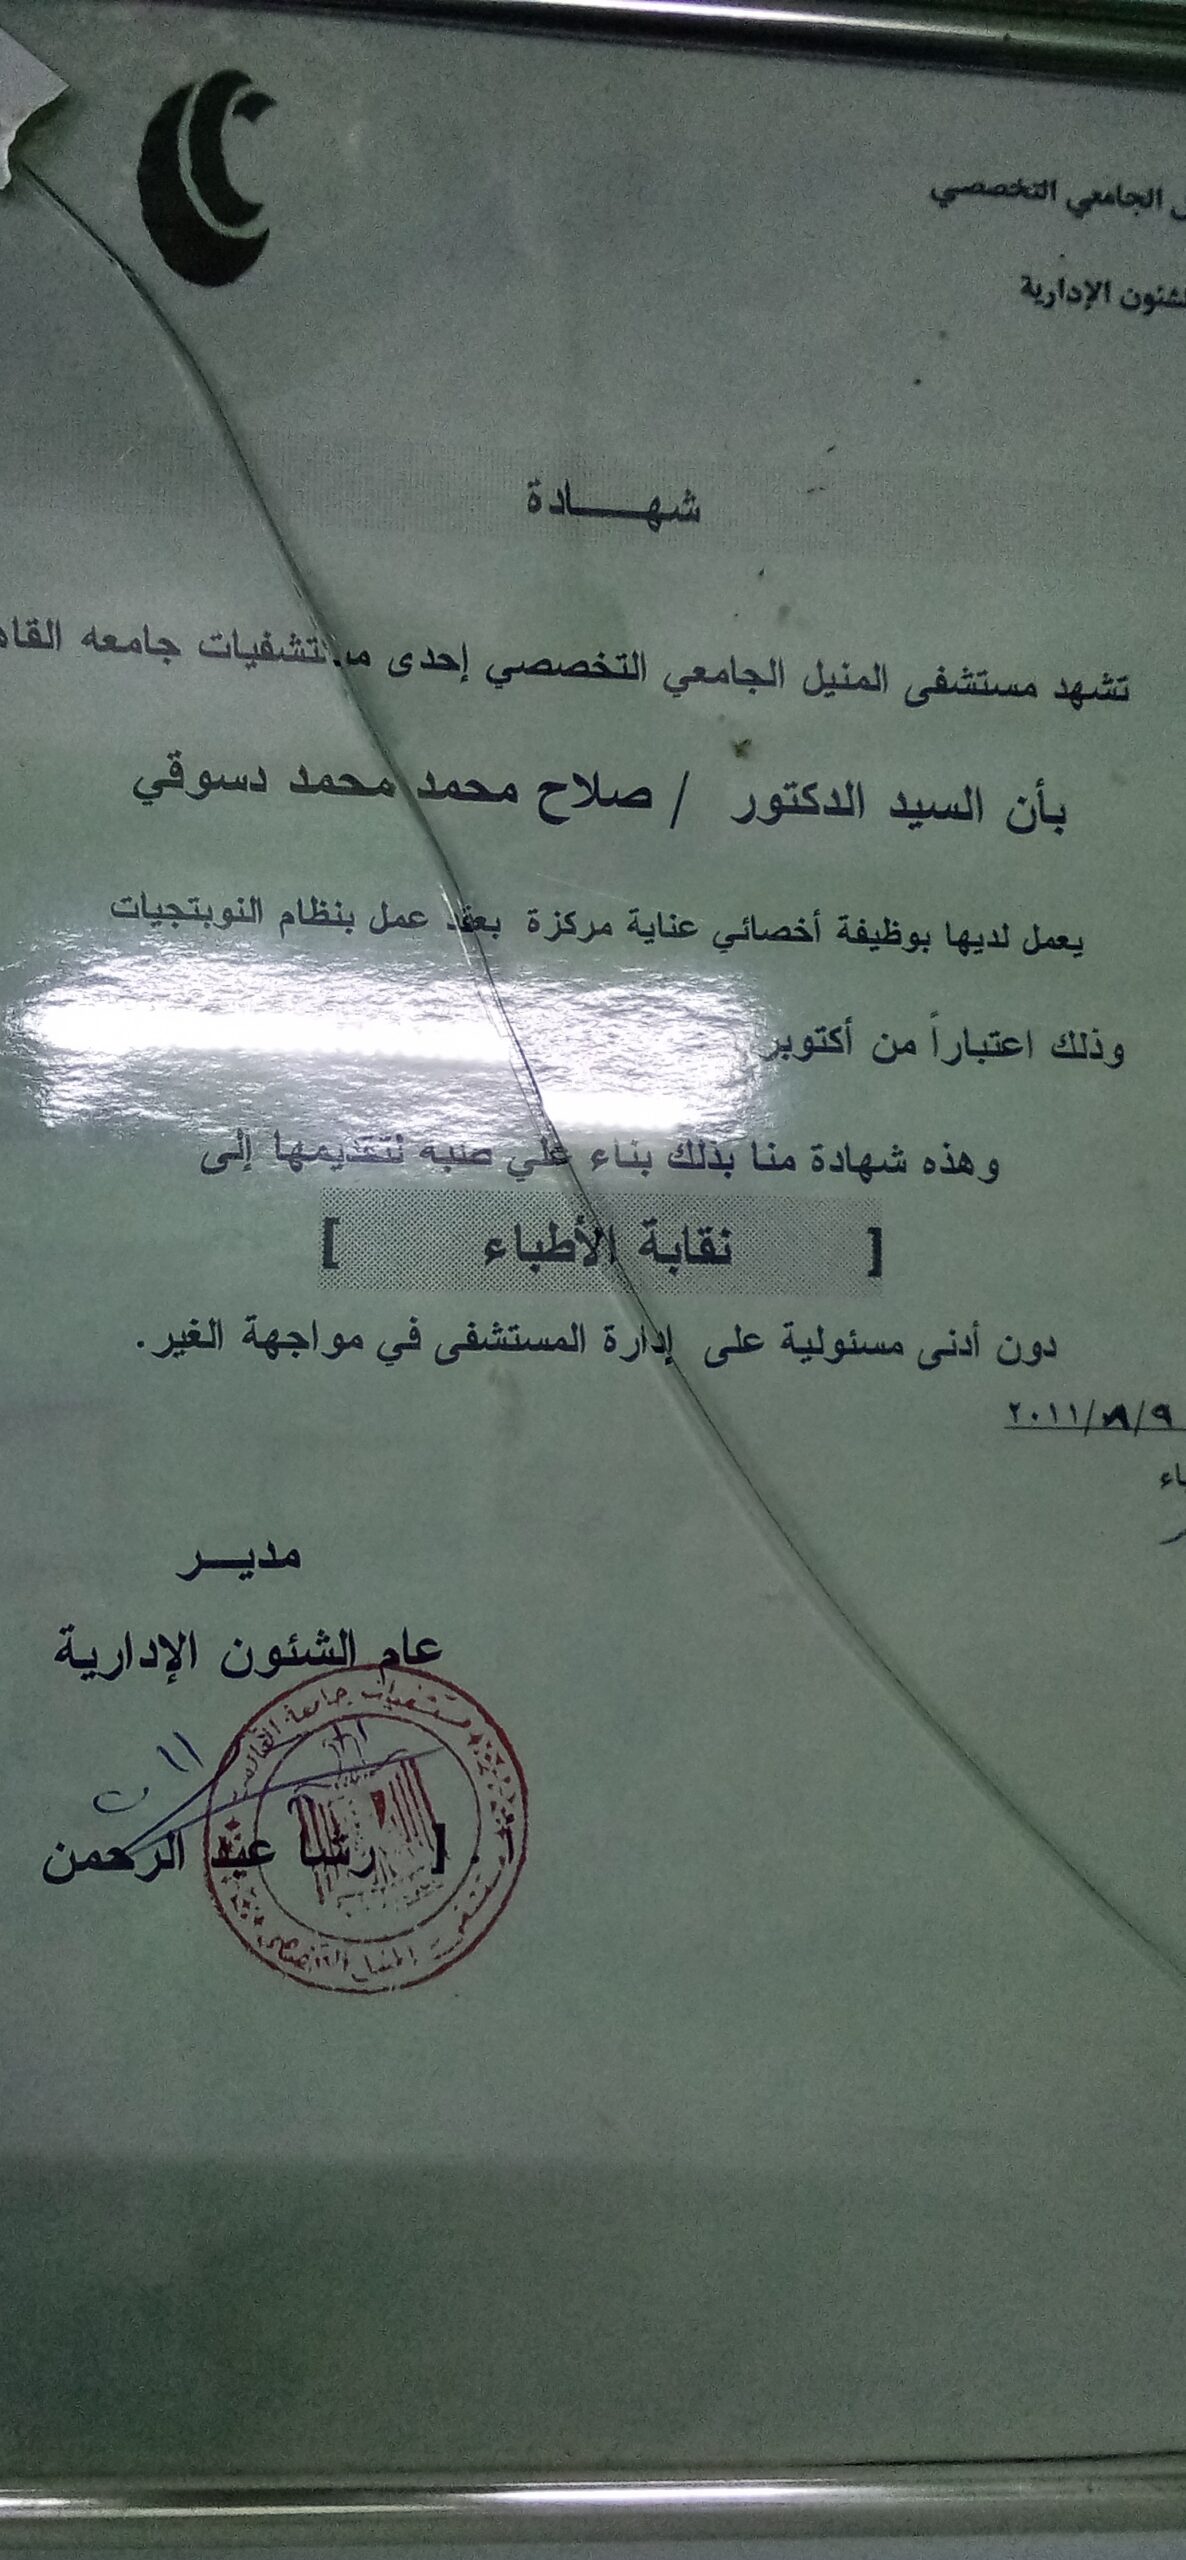 الجامعي التخصصي
الإدارية
شهـــــادة
تشهد مستشفى المنيل الجامعي التخصصي إحدى مستشفيات جامعه
بأن السيد الدكتور / صلاح محمد محمد دسوقي
يعمل لديها بوظيفة أخصائي عناية مركزة بعقد عمل بنظام النوبتجيات
وذلك اعتباراً من أكتوبر
وهذه شهادة منا بذلك بناء علي طلبه لتقديمها إلى
[ نقابة الأطباء ]
دون أدنى مسئولية على إدارة المستشفى في مواجهة الغير.
مديـــر
عام الشئون الإدارية
مستشفيات جامعة القاهرة
[ رشا عبد الرحمن